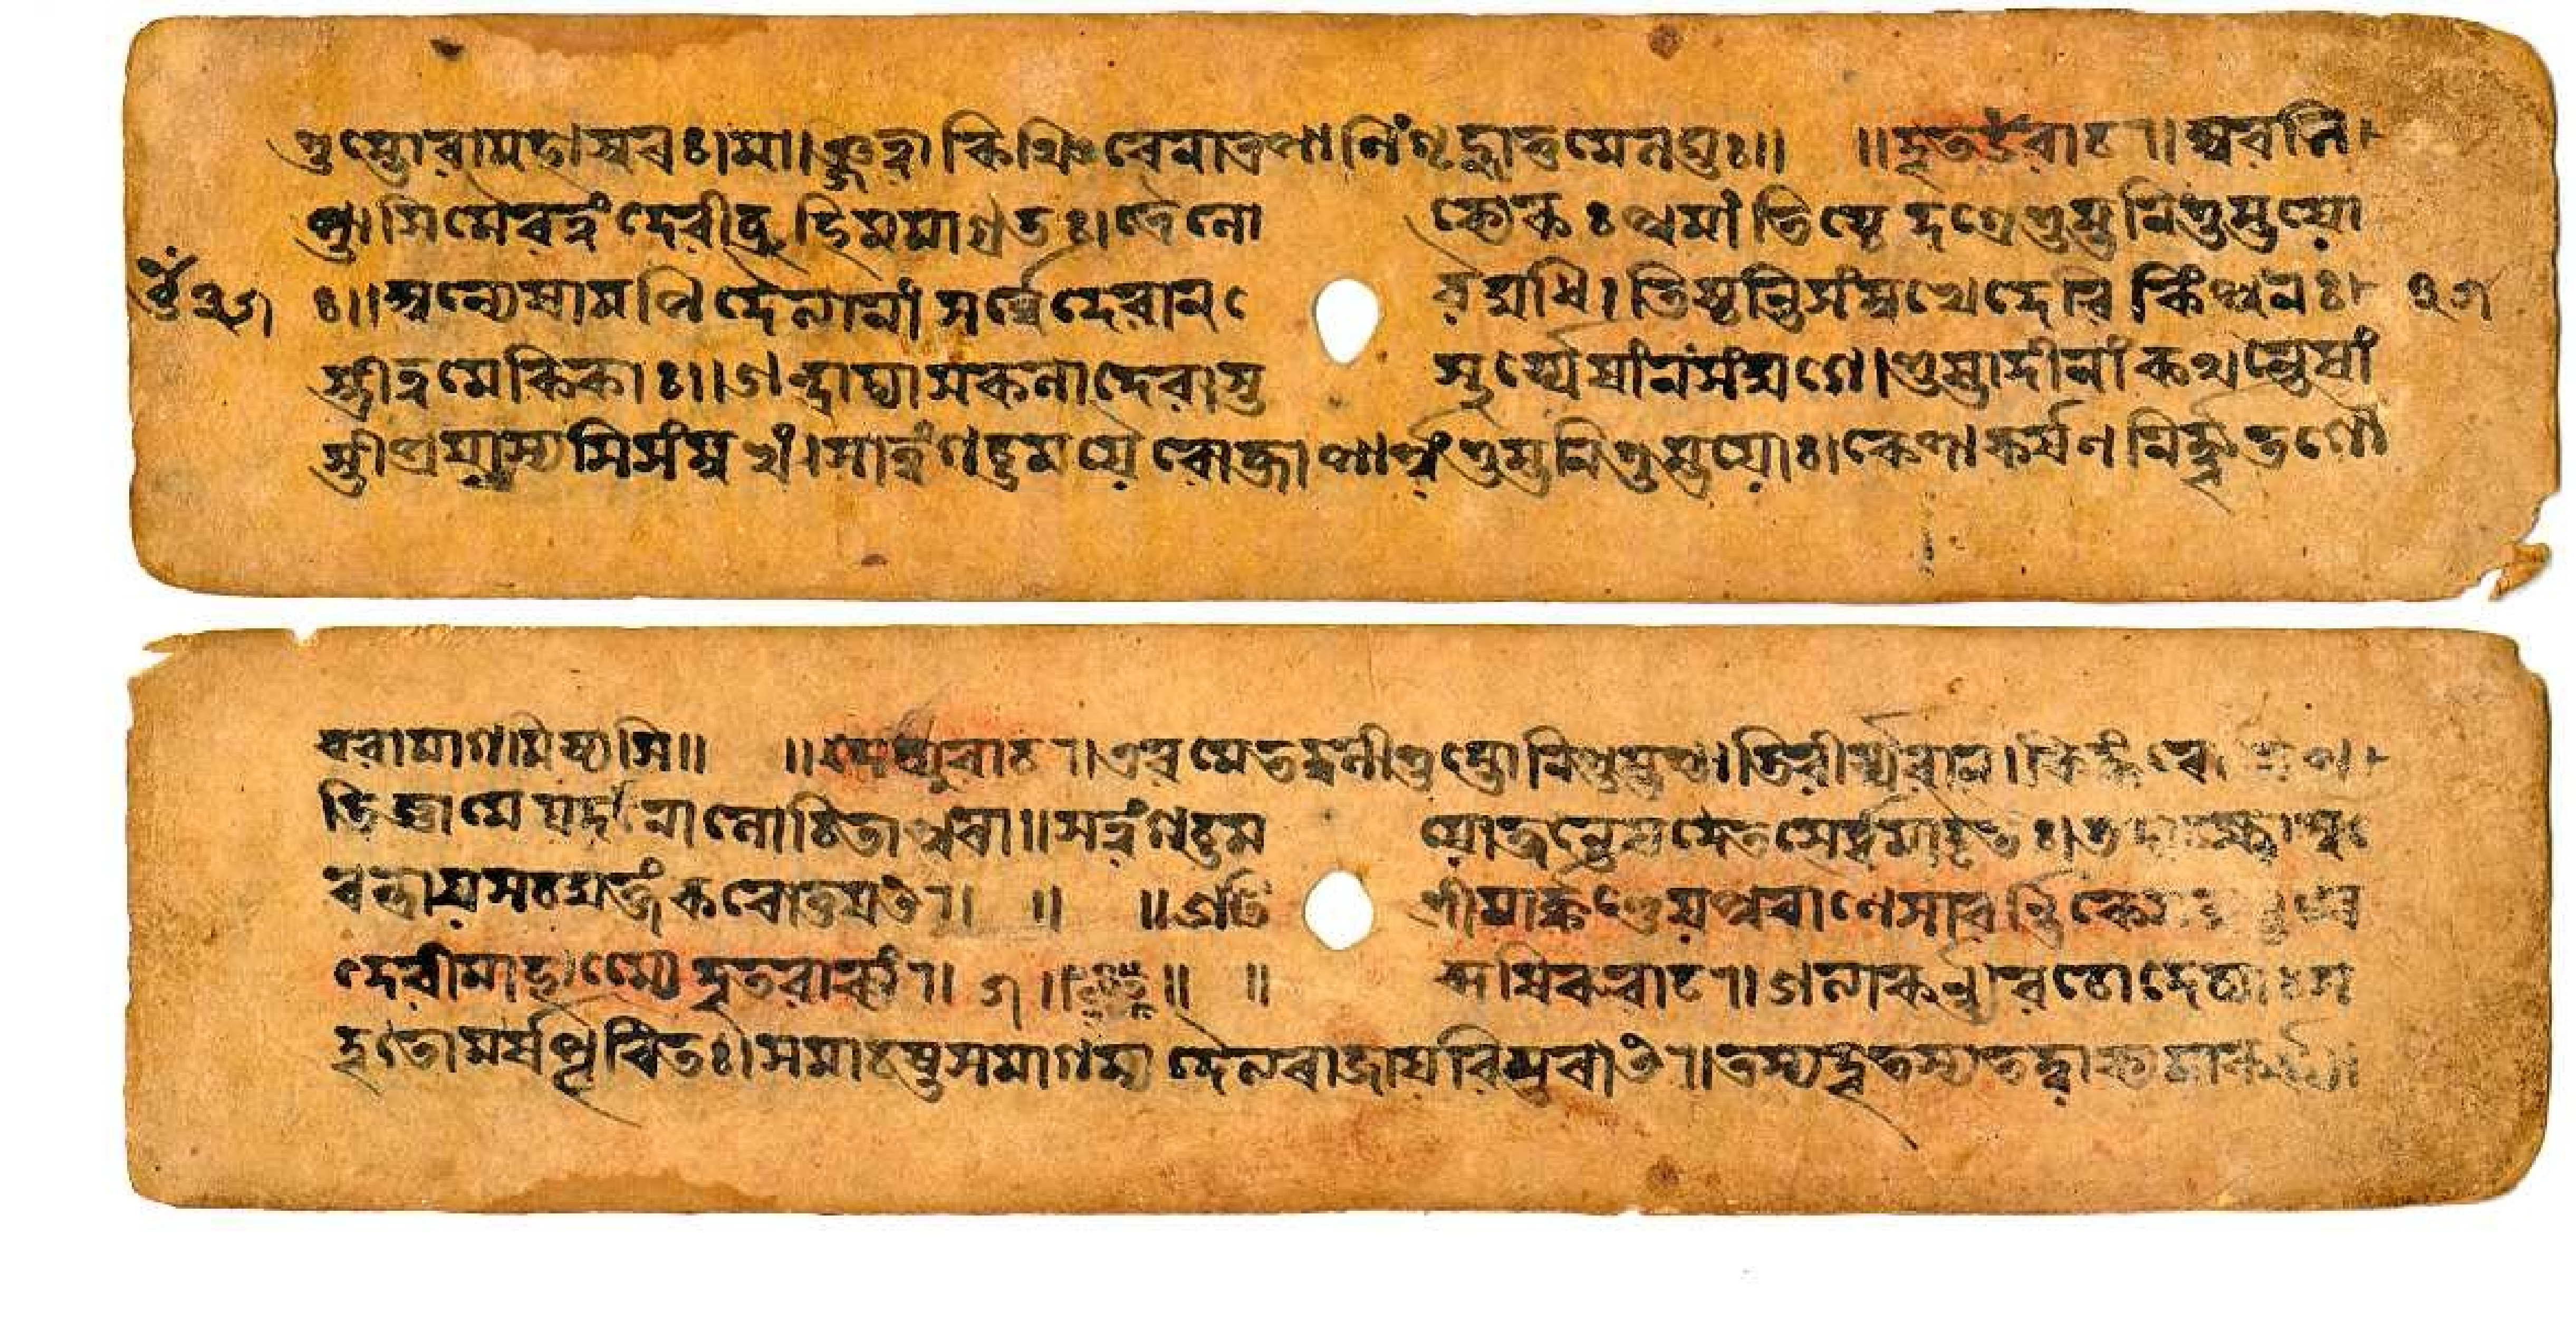 শুম্ভোবামহাসুরঃ। মাং জিত্বা কিঞ্চিরেনাত্র পাণিং গৃহ্ণাতু মেলঘুঃ॥ ॥দূতউবাচ॥ অবলি
প্তাসি মৈবত্বং দেবী ব্রূহি মমাগ্রতঃ। ত্রৈলো ক্যেকঃ পুমাং তিষ্ঠেদগ্রে শুম্ভনিশুম্ভয়ো
ঃ॥ অন্যেষামপি দৈত্যানাং সর্ব্বে দেবান বৈ যুধি। তিষ্ঠন্তি সংমুখে দেবি কিং পুনঃ
স্ত্রীত্বমেকিকাঃ॥ ইন্দ্রাদ্যা সকলা দেবাস্ত স্থুর্য্যেষাং নসংযুগে। শুম্ভাদীনাং কথন্তেষাং
স্ত্রীপ্রযাস্যসি সংমুখং। সাত্বং গচ্ছ ময়ৈরোক্তা পার্শ্বং শুম্ভনিশুম্ভয়োঃ। কেশাকর্ষণ নির্দ্ধূতগৌ
রবামাগমিষ্যসি॥ ॥দেব্যুবাচ॥ এবমেতদ্বলী শুম্ভো নিশুম্ভশ্চাতিবীর্য্যবান।
তিজ্ঞামে যদনালোচিতা পুরা॥ সত্বং গচ্ছম য়োক্তন্তে যদেতৎ সর্ব্বমাদৃতঃ।
রেন্দ্রায় সচযুক্তং করোতুযৎ॥ ॥ ॥ইতি শ্রীমার্কণ্ডেয়পুরাণে সাবর্ণিকে
দেবীমাহাত্ম্যে দূতবাক্যং॥ ৫॥ ॥ ঋষিরুবাচ॥ ইত্যাকর্ণ্য বচোদেব্যাঃ স
দূতোমর্ষপূরিতঃ। সমাচষ্ট সমাগম্য দৈত্যরাজায় বিস্তরাৎ॥ তস্য দূতস্য তদ্বাক্যমাকর্ণ্যা